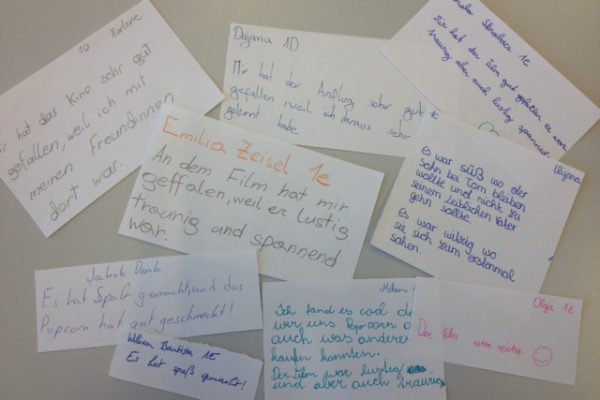 1D Marlene
Mir hat das Kino sehr gut
gefallen, weil ich mit
meinen Freundinnen
dort war.
Dajana 1D
Mir hat der Ausflug sehr gut
gefallen weil ich daraus sehr
gelernt habe
1e
Mir hat der Film gut gefallen er war
traurig aber auch lustig spannend
Emilia Zeisel 1e
An dem Film hat mir
geffalen, weil er lustig
traurig und spannend
war.
Es war süß wo der
Sohn bei Tom bleiben
wollte und nicht zu
seinem leiblichen Vater
gehn sollte.
Es war witzig wo
sie sich zum erstenmal
sahen.
Jakob Denk
Es hat Spaß gemacht,und das
Popcorn hat gut geschmeckt!
1E
Es hat spaß gemacht!
Milena
Ich fand es cool da
wir uns Popcorn o
auch was anderes
kaufen konnten.
Der Film war lustig
und aber auch traurig
Olga 1e
Der film war spitze